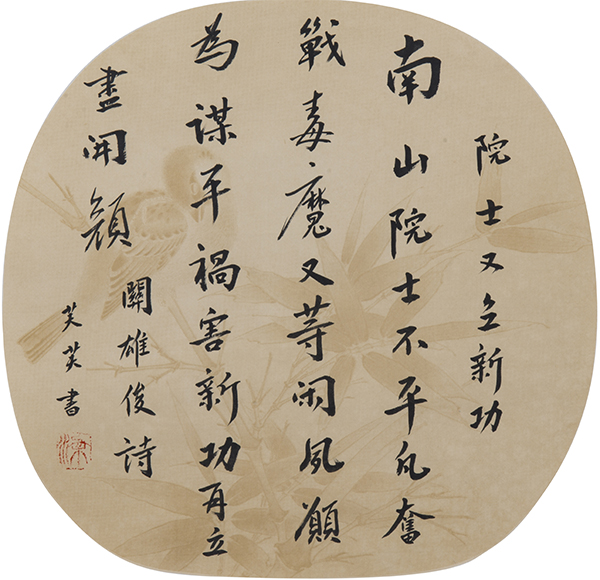 院士又立新功
南山院士不平凡奮
戰毒魔又等闲夙願
為謀平禍害新功再立
盡開顏
關雄俊詩
芙芙書